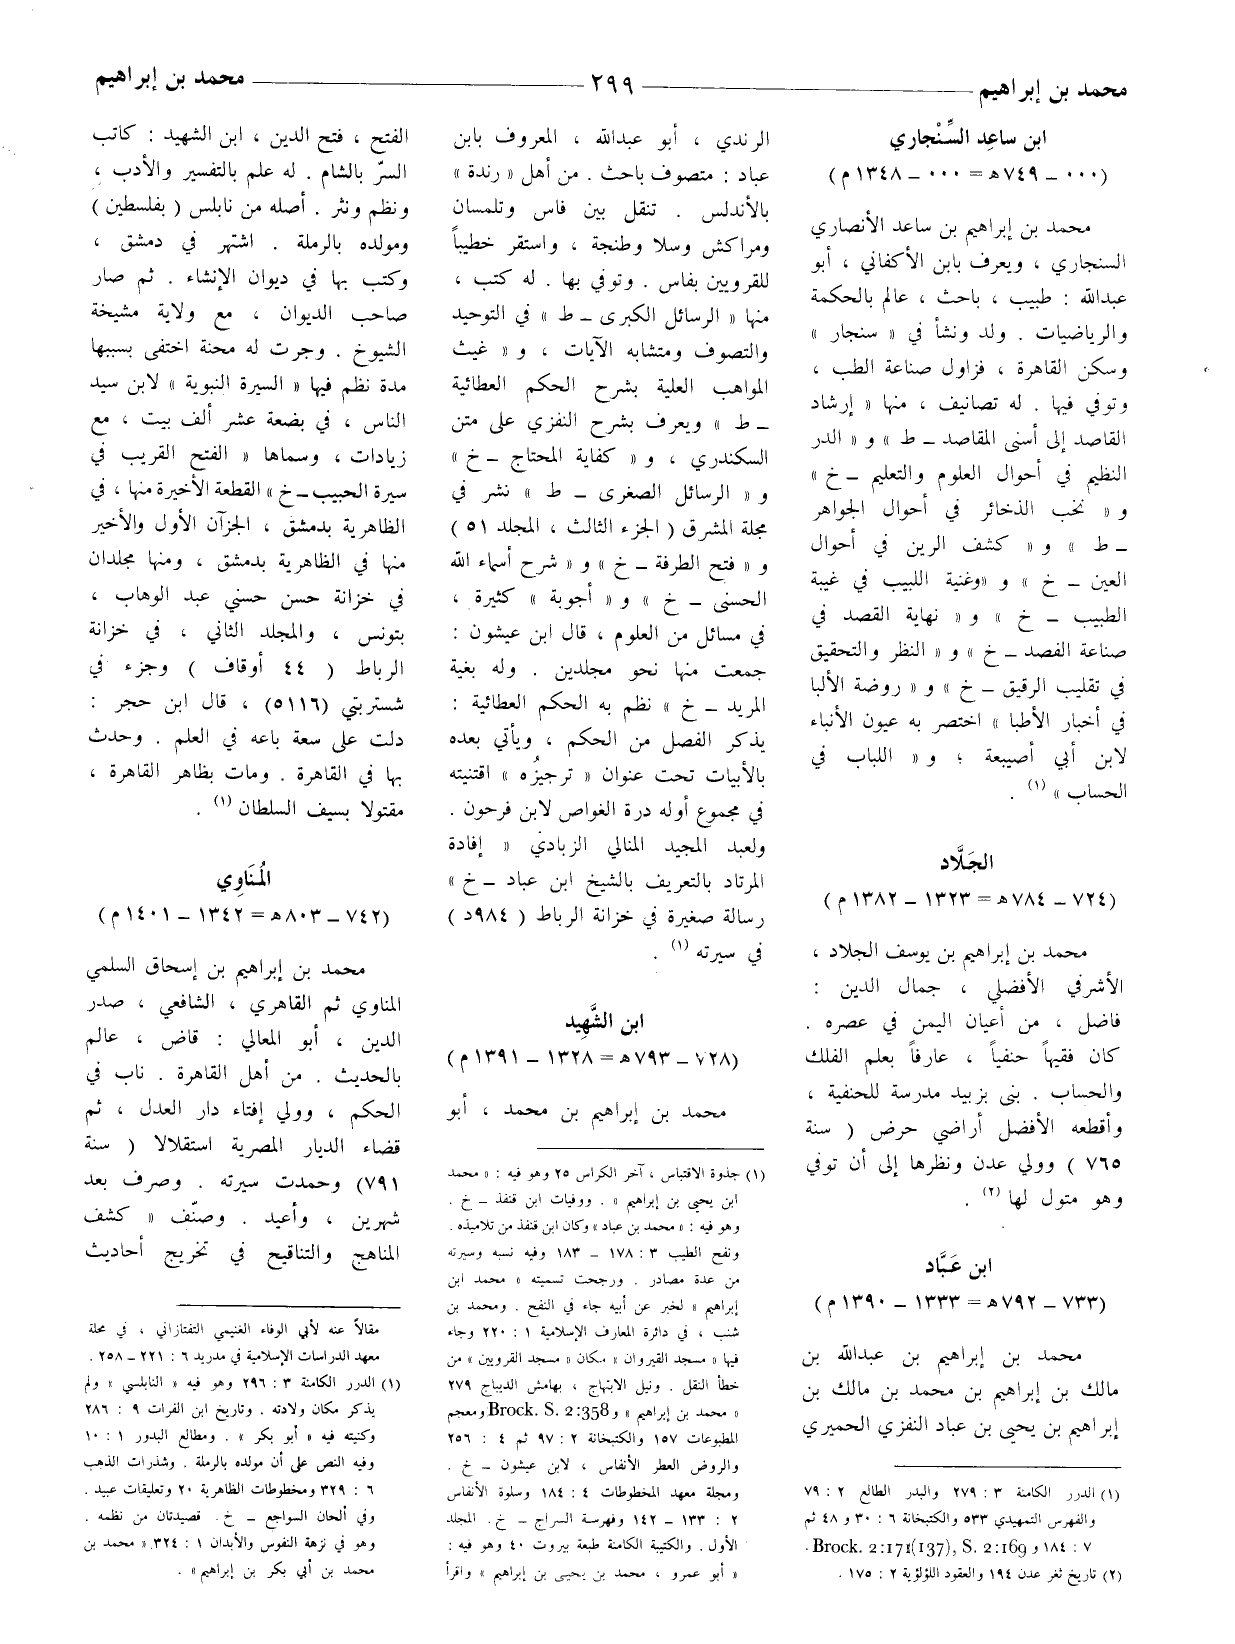 محمد بن إبراهيم
٢٩٩
محمد بن إبراهيم
ابن ساعِد السِّنْجاري
(٠٠٠ ــ ٧٤٩ ھ = ٠٠٠ ــ ١٣٤٨ م)
محمد بن إبراهيم بن ساعد الأنصاري
السنجاري ، ويعرف بابن الأكفاني ، أبو
عبدالله : طبيب ، باحث ، عالم بالحكمة
والرياضيات . ولد ونشأ في « سنجار »
وسكن القاهرة ، فزاول صناعة الطب ،
وتوفي فيها . له تصانيف ، منها « إرشاد
القاصد إلى أسنى المقاصد ــ ط » و « الدر
النظيم في أحوال العلوم والتعليم ــ خ »
و « نخب الذخائر في أحوال الجواهر
ــ ط » و « كشف الرين في أحوال
العين ــ خ » و «وغنية اللبيب في غيبة
الطبيب ــ خ » و « نهاية القصد في
صناعة الفصد ــ خ » و « النظر والتحقيق
في تقليب الرقيق ــ خ » و « روضة الألبا
في أخبار الأطبا » اختصر به عيون الأنباء
لابن أبي أصيبعة ؛ و « اللباب في
الحساب » (١) .
الجَلَّاد
(٧٢٤ ــ ٧٨٤ ھ = ١٣٢٣ ــ ١٣٨٢ م)
محمد بن إبراهيم بن يوسف الجلاد ،
الأشرفي الأفضلي ، جمال الدين :
فاضل ، من أعيان اليمن في عصره .
كان فقيهاً حنفياً ، عارفاً بعلم الفلك
والحساب . بنى بزبيد مدرسة للحنفية ،
وأقطعه الأفضل أراضي حرض ( سنة
٧٦٥ ) وولي عدن ونظرها إلى أن توفي
وهو متول لها (٢) .
ابن عَبَّاد
(٧٣٣ ــ ٧٩٢ ھ = ١٣٣٣ ــ ١٣٩٠ م)
محمد بن إبراهيم بن عبدالله بن
مالك بن إبراهيم بن محمد بن مالك بن
إبراهيم بن يحيى بن عباد النفزي الحميري
(١) الدرر الكامنة ٣ : ٢٧٩ والبدر الطالع ٢ : ٧٩
والفهرس التمهيدي ٥٣٣ والكتبخانة ٦ : ٣٠ و ٤٨ ثم
٧ : ١٨٤ و Brock. 2:171(137), S. 2:169 .
(٢) تاريخ ثغر عدن ١٩٤ والعقود اللؤلؤية ٢ : ١٧٥ .
الرندي ، أبو عبدالله ، المعروف بابن
عباد : متصوف باحث . من أهل « رندة »
بالأندلس . تنقل بين فاس وتلمسان
ومراكش وسلا وطنجة ، واستقر خطيباً
للقرويين بفاس . وتوفي بها . له كتب ،
منها « الرسائل الكبرى ــ ط » في التوحيد
والتصوف ومتشابه الآيات ، و « غيث
المواهب العلية بشرح الحكم العطائية
ــ ط » ويعرف بشرح النفزي على متن
السكندري ، و « كفاية المحتاج ــ خ »
و « الرسائل الصغرى ــ ط » نشر في
مجلة المشرق ( الجزء الثالث ، المجلد ٥١ )
و « فتح الطرفة ــ خ » و « شرح أسماء الله
الحسنى ــ خ » و « أجوبة » كثيرة ،
في مسائل من العلوم ، قال ابن عيشون :
جمعت منها نحو مجلدين . وله بغية
المريد ــ خ » نظم به الحكم العطائية :
يذكر الفصل من الحكم ، ويأتي بعده
بالأبيات تحت عنوان « ترجيزُه » اقتنيته
في مجموع أوله درة الغواص لابن فرحون .
ولعبد المجيد المنالي الزبادي « إفادة
المرتاد بالتعريف بالشيخ ابن عباد ــ خ »
رسالة صغيرة في خزانة الرباط ( ٩٨٤د )
في سيرته (١) .
ابن الشَّهِيد
(٧٢٨ ــ ٧٩٣ ھ = ١٣٢٨ ــ ١٣٩١ م)
محمد بن إبراهيم بن محمد ، أبو
(١) جذوة الاقتباس ، آخر الكراس ٢٥ وهو فيه : « محمد
ابن يحيى بن إبراهيم » . ووفيات ابن قنفذ ــ خ .
وهو فيه : « محمد بن عباد » وكان ابن قنفذ من تلاميذه .
ونفح الطيب ٣ : ١٧٨ ــ ١٨٣ وفيه نسبه وسيرته
من عدة مصادر . ورجحت تسميته « محمد ابن
إبراهيم » لخبر عن أبيه جاء في النفح . ومحمد بن
شنب ، في دائرة المعارف الإسلامية ١ : ٢٢٠ وجاء
فيها « مسجد القيروان » مكان « مسجد القرويين » من
خطأ النقل . ونيل الابتهاج ، بهامش الديباج ٢٧٩
« محمد بن إبراهيم » و Brock. S. 2:358 ومعجم
المطبوعات ١٥٧ والكتبخانة ٢ : ٩٧ ثم ٤ : ٢٥٦
والروض العطر الأنفاس ، لابن عيشون ــ خ .
ومجلة معهد المخطوطات ٤ : ١٨٤ وسلوة الأنفاس
٢ : ١٣٣ ــ ١٤٢ وفهرسة السراج ــ خ. المجلد
الأول . والكتيبة الكامنة طبعة بيروت ٤٠ وهو فيه :
« أبو عمرو ، محمد بن يحيى بن إبراهيم » واقرأ
الفتح ، فتح الدين ، ابن الشهيد : كاتب
السرّ بالشام . له علم بالتفسير والأدب ،
ونظم ونثر . أصله من نابلس ( بفلسطين )
ومولده بالرملة . اشتهر في دمشق ،
وكتب بها في ديوان الإنشاء . ثم صار
صاحب الديوان ، مع ولاية مشيخة
الشيوخ . وجرت له محنة اختفى بسببها
مدة نظم فيها « السيرة النبوية » لابن سيد
الناس ، في بضعة عشر ألف بيت ، مع
زيادات ، وسماها « الفتح القريب في
سيرة الحبيب ــ خ » القطعة الأخيرة منها ، في
الظاهرية بدمشق ، الجزآن الأول والأخير
منها في الظاهرية بدمشق ، ومنها مجلدان
في خزانة حسن حسني عبد الوهاب ،
بتونس ، والمجلد الثاني ، في خزانة
الرباط ( ٤٤ أوقاف ) وجزء في
شستربتي (٥١١٦) ، قال ابن حجر :
دلت على سعة باعه في العلم . وحدث
بها في القاهرة . ومات بظاهر القاهرة ،
مقتولا بسيف السلطان (١) .
المُنَاوِي
(٧٤٢ ــ ٨٠٣ ھ = ١٣٤٢ ــ ١٤٠١ م)
محمد بن إبراهيم بن إسحاق السلمي
المناوي ثم القاهري ، الشافعي ، صدر
الدين ، أبو المعالي : قاض ، عالم
بالحديث . من أهل القاهرة . ناب في
الحكم ، وولي إفتاء دار العدل ، ثم
قضاء الديار المصرية استقلالا ( سنة
٧٩١) وحمدت سيرته . وصرف بعد
شهرين ، وأعيد . وصنّف « كشف
المناهج والتناقيح في تخريج أحاديث
مقالاً عنه لأبي الوفاء الغنيمي التفتازاني ، في مجلة
معهد الدراسات الإسلامية في مدريد ٦ : ٢٢١ ــ ٢٥٨ .
(١) الدرر الكامنة ٣ : ٢٩٦ وهو فيه « النابلسي » ولم
يذكر مكان ولادته . وتاريخ ابن الفرات ٩ : ٢٨٦
وكنيته فيه « أبو بكر » . ومطالع البدور ١ : ١٠
وفيه النص على أن مولده بالرملة . وشذرات الذهب
٦ : ٣٢٩ ومخطوطات الظاهرية ٢٠ وتعليقات عبيد .
وفي ألحان السواجع ــ خ. قصيدتان من نظمه .
وهو في نزهة النفوس والأبدان ١ : ٣٢٤ « محمد بن
محمد بن أبي بكر بن إبراهيم» .